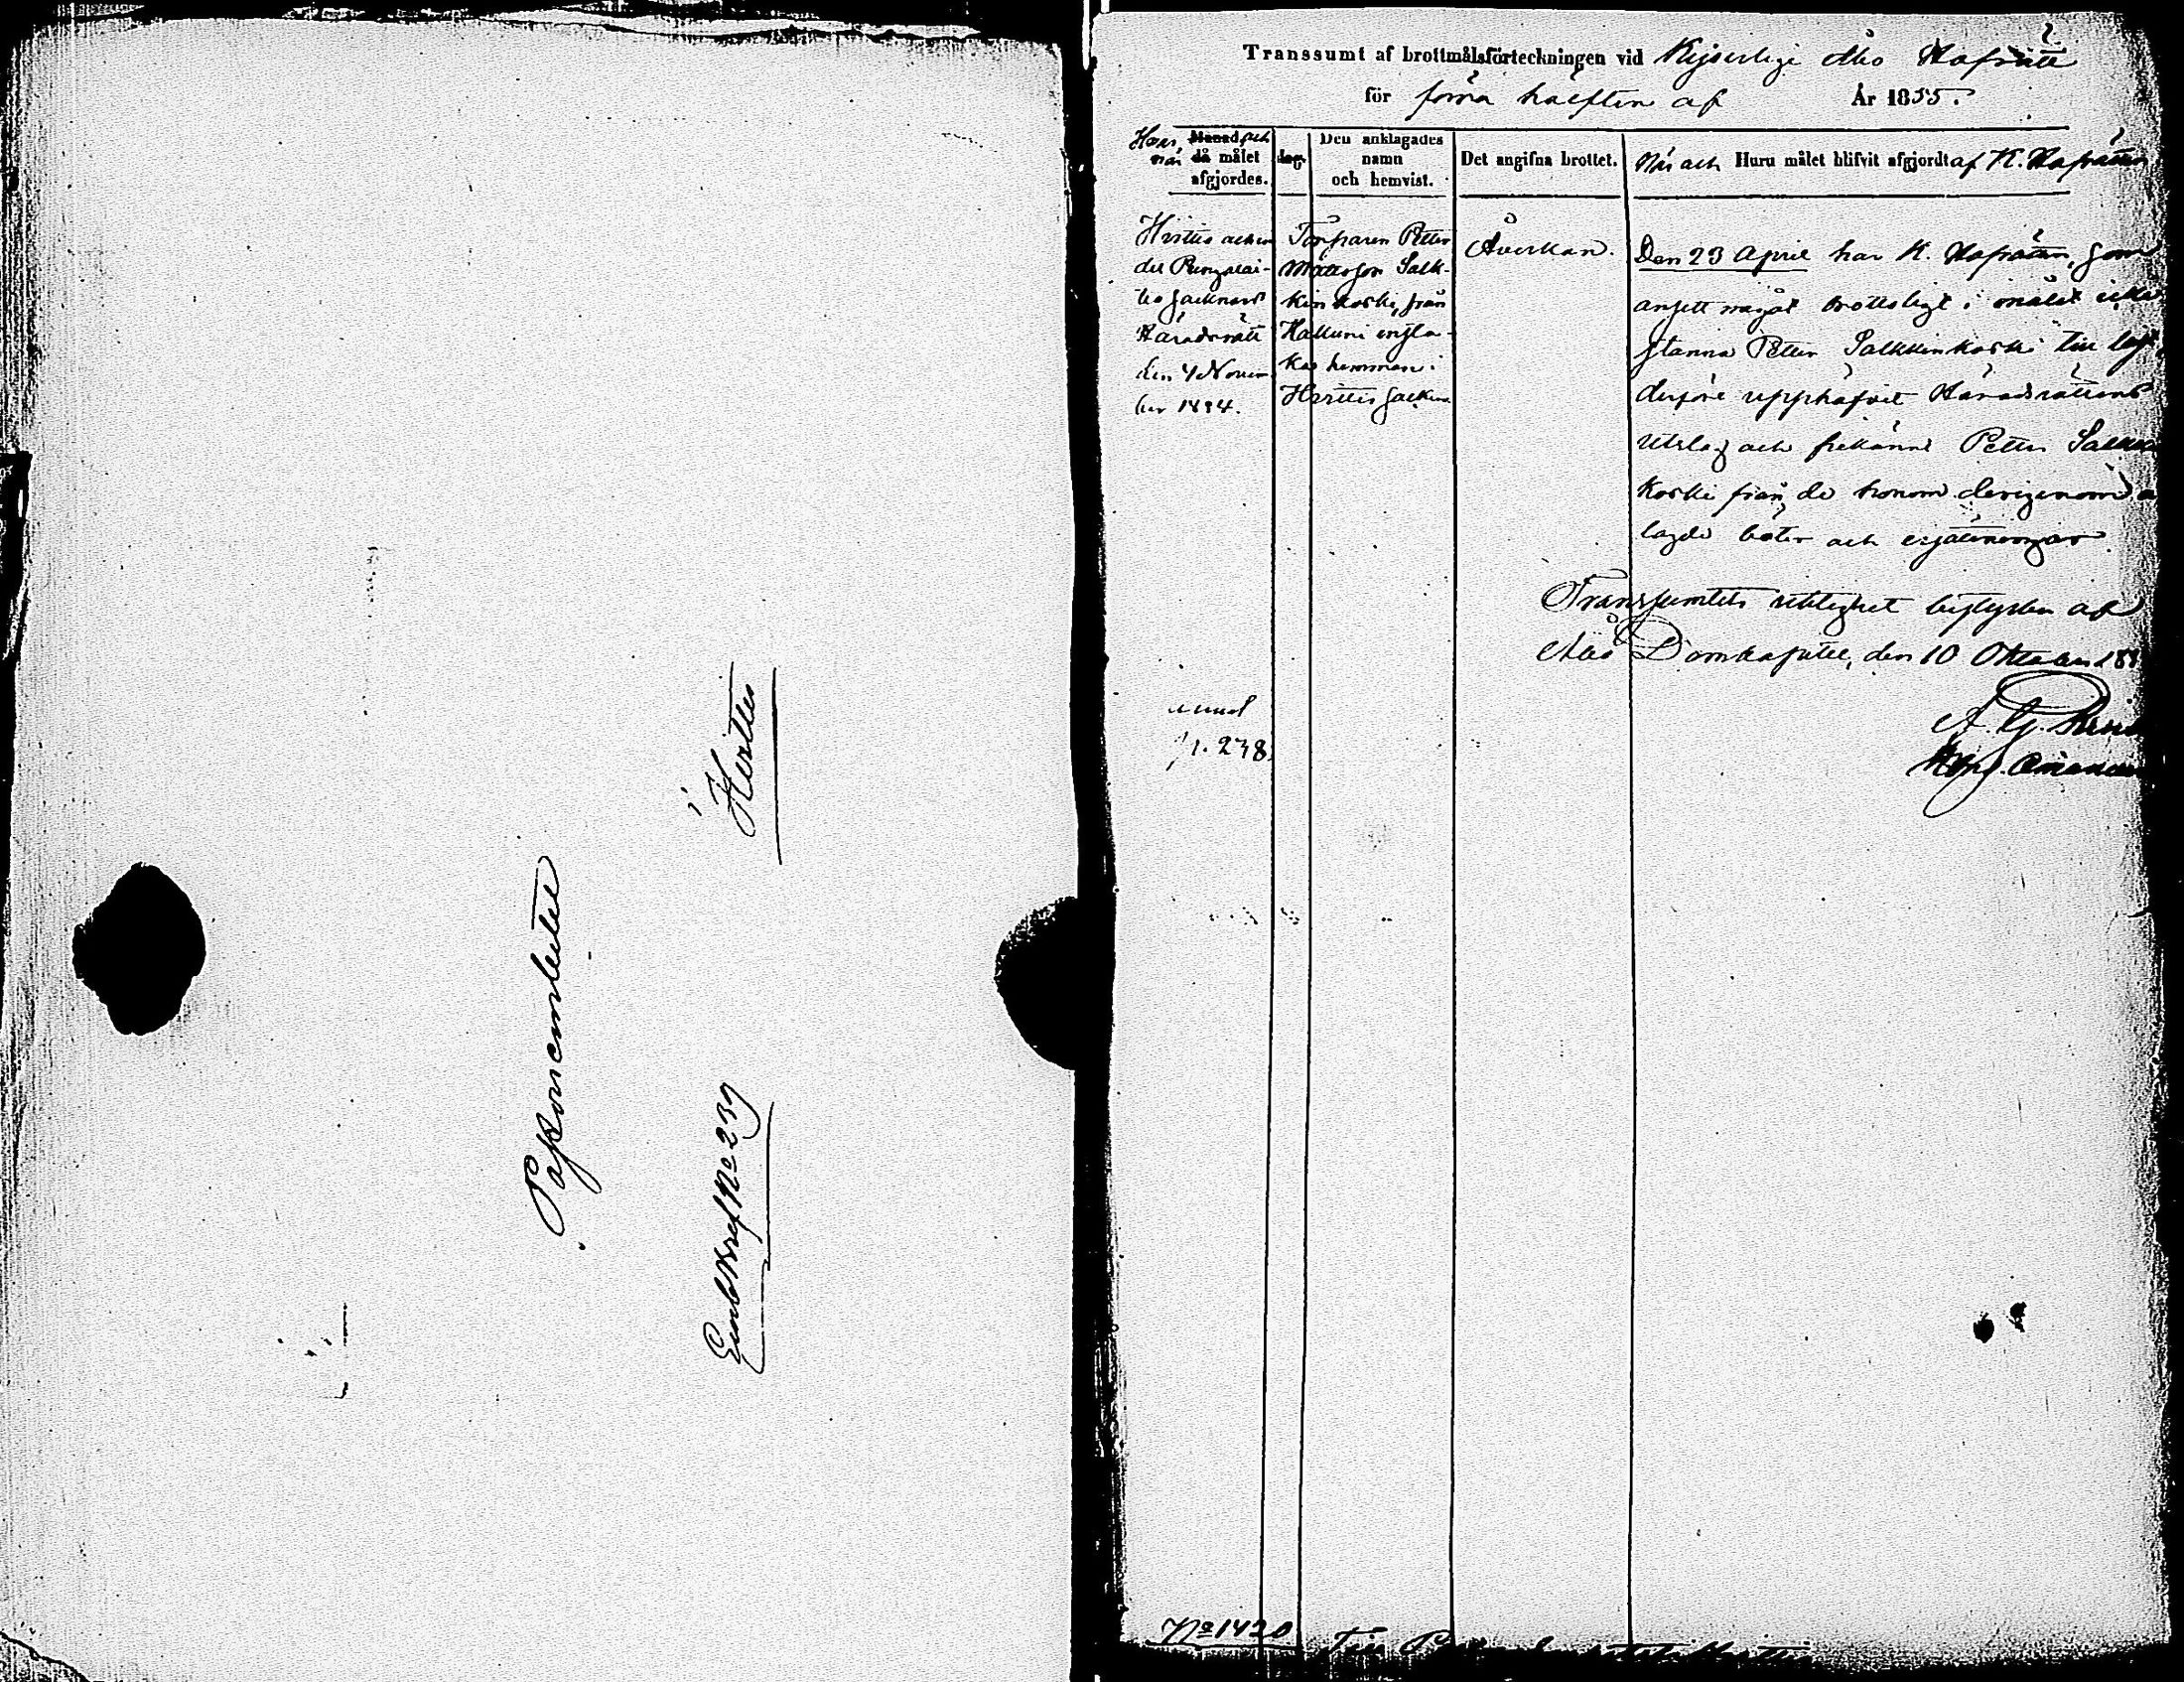 Pastorsembetet
i Hvittis
Embetsbref No 239
Transsumt af brottmålsförteckningen vid Kejserliga Åbo Hofrätt
för förra hälften af År 1855.
Hvar, när Månad och då målet afgjordes.
dag.
Den anklagades namn och hemvist.
Det angifna brottet.
När och Huru målet blifvit afgjordt af K. Hofrätten
Hvittis socken
del Pungalai-
tio socknars
Häradsrätt
den 4 Novem
ber 1854.
Torparen Petter
Mattsson Salk-
kinkoski, från
hemman i
Hvittis socken
Åverkan.
Den 23 April har K. Hofrätten, som
ansett något brottsligt i målet icke
stanna Petter Salkkinkoski till last,
derföre upphäfvit Häradsrättens
utslag och frikännt Petter
koski från de honom derigenom
lagde böter och ersättningar.
Transsumtets riktighet bestyrker af
Åbo Domkapitel, den 10 Oktober
A. G.
No 1420